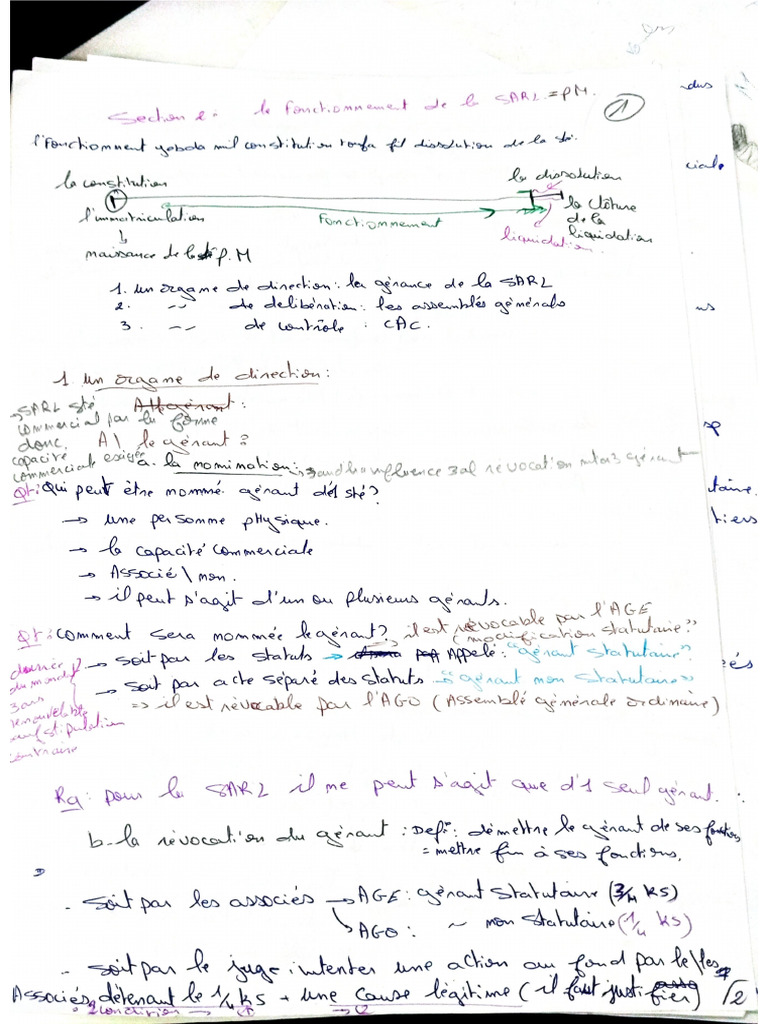 Section 2: le fonctionnement de la SARL = PM.
1
l'fonctionment yabda mil constitution toufa fil dissolution de la sté.
la constitution
la dissolution
l'immatriculation
fonctionnement
la clôture de la liquidation
liquidation
naissance de la P.M
1. un organe de direction: la gérance de la SARL
2. -- de deliberation: les assemblés générals
3. -- de contrôle : CAC.
1. un organe de direction:
→ SARL sté
commercial par la forme
donc
capacité
commerciale exigée
A\ le gérant?
a. la nomination: influence révocation gérant
Qt: Qui peut être nommé gérant dé1 sté?
→ une personne physique.
→ la capacité commerciale
→ Associé \ non.
→ il peut s'agit d'un ou plusieurs gérants.
Qt: Comment sera nommée le gérant?
il est révocable par l'AGE
(modification statutaire"
→ soit par les statuts → Appelé: "gérant statutaire"
→ soit par acte séparé des statuts → "gérant non statutaire"
⇒ il est révocable par l'AGO (Assemblé générale ordinaire)
durée
du mandat
3 ans
renouvelable
sauf stipulation
contraire
Rq: pour la SARL il ne peut s'agit que d'1 seul gérant.
b- la révocation du gérant : Def°: démettre le gérant de ses fonctions
= mettre fin à ses fonctions.
- soit par les associés → AGE: gérant statutaire (3/4 KS)
↳ AGO: ~ non statutaire (1/4 KS)
- soit par le juge: intenter une action au fond par le\les
Associés détenant le 1/4 KS + une cause légitime (il faut justifier)